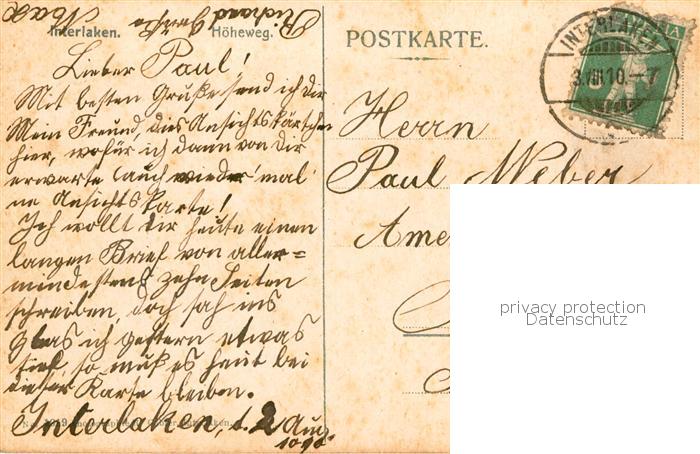 Max
Richard
Grüße
Interlaken. Höheweg.
Lieber Paul!
Mit besten Grüße send ich dir
Mein Freund, dies Ansichtskärtchen
hier, wofür ich dann von dir
erwarte (auch wieder 'mal
'ne Ansichtskarte!
Ich wollt dir heute einen
langen Brief von aller=
mindestens zehn Seiten
schreiben, doch sah ins
Glas ich gestern etwas
tief, so muß es heut bei
dieser Karte bleiben.
Interlaken, d. 2 Aug
1910
POSTKARTE.
INTERLAKEN
3.VIII.10.–7
HELVETIA
5
Herrn
Paul Weber
privacy protection
Datenschutz